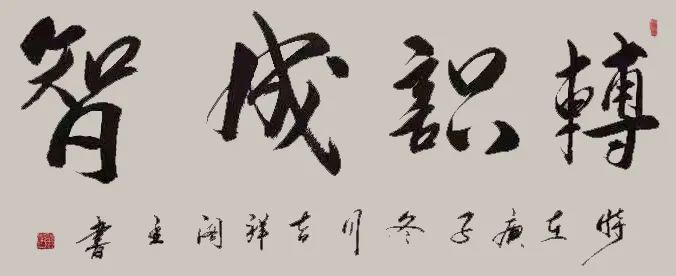 轉識成智
時在庚子冬月吉祥閣主書